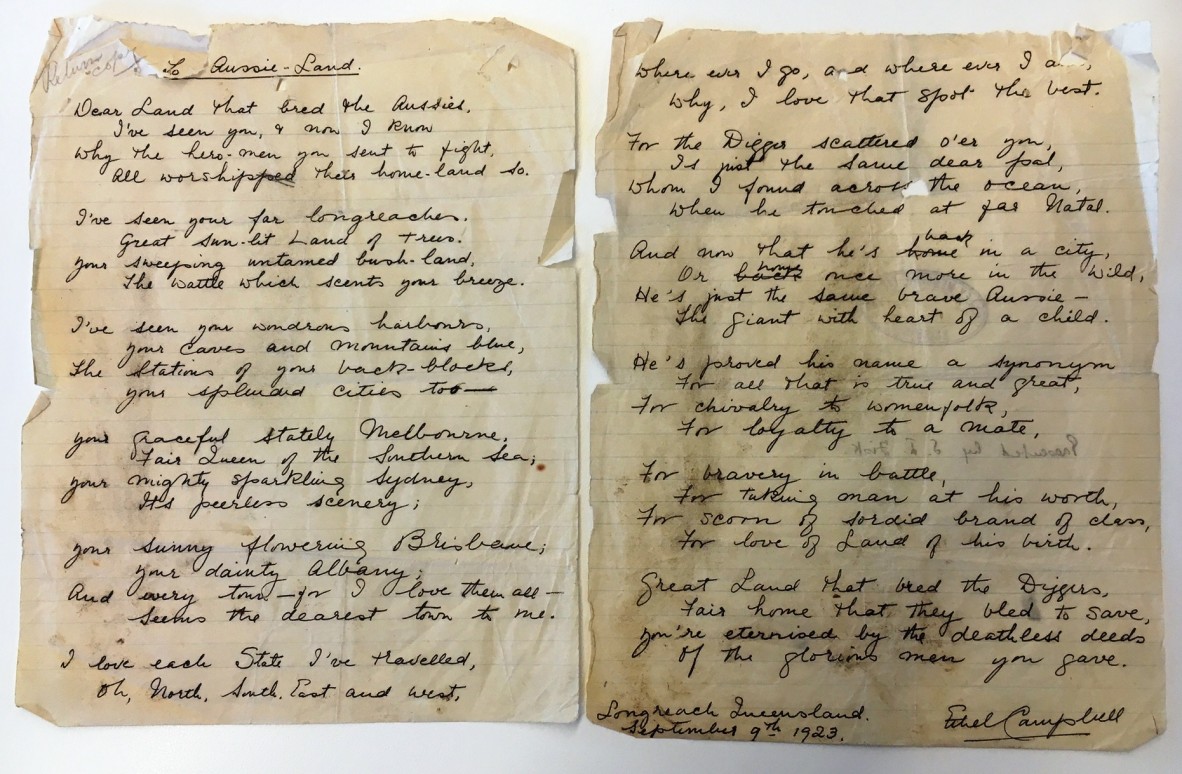 Return copy
To Aussie-Land.
Dear Land that bred the Aussies,
I've seen you, & now I know
Why the hero-men you sent to fight,
All worshipped their home-land so.
I've seen your far longreaches.
Great sun-lit Land of Trees.
Your sweeping untamed bush-land,
The wattle which scents your breeze.
I've seen your wondrous harbours,
Your caves and mountains blue,
The Stations of your back-blocks,
Your splendid cities too—
Your graceful stately Melbourne,
Fair Queen of the Southern Sea;
Your mighty sparkling Sydney,
Its peerless scenery;
Your sunny flowering Brisbane;
Your dainty Albany;
And every town—for I love them all—
Seems the dearest town to me.
I love each State I've travelled,
Oh, North, South, East and West,
Where ever I go, and where ever I am,
Why, I love that spot the best.
For the Digger scattered o'er you,
Is just the same dear pal,
Whom I found across the ocean,
When he touched at far Natal.
And now that he's home back in a city,
Or back home once more in the Wild,
He's just the same brave Aussie—
The giant with heart of a child.
He's proved his name a synonym
For all that is true and great,
For chivalry to womenfolk,
For loyalty to a mate,
For bravery in battle,
For taking man at his worth,
For scorn of sordid brand of class,
For love of Land of his birth.
Great Land that bred the Diggers,
Fair home that they bled to save,
You're eternised by the deathless deeds
Of the glorious men you gave.
Longreach Queensland.
September 9th 1923.
Ethel Campbell